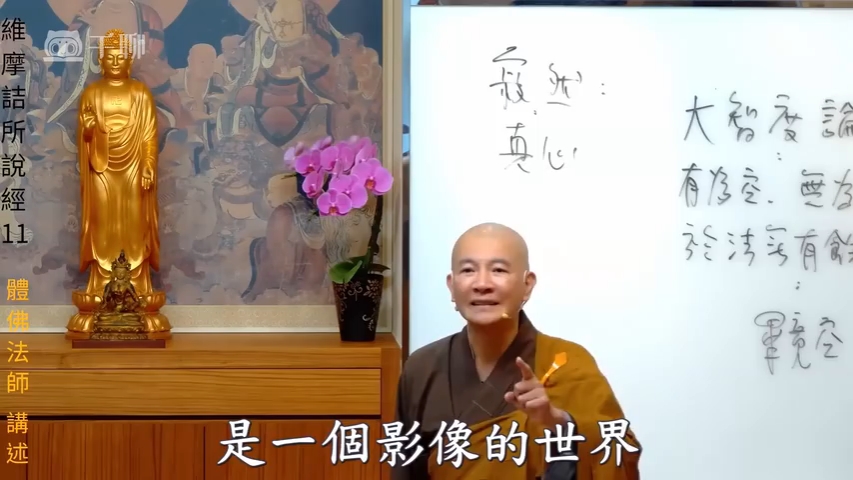 維摩詰所說經11
體佛法師 講述
寂然：
真心
大智度論
有為空、無為
於法無有餘
畢竟空
是一個影像的世界